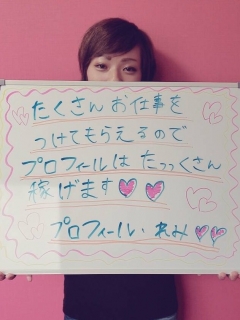 たくさんお仕事を
つけてもらえるので
プロフィールはたっっくさん
稼げます♡♡
プロフィール・れみ♡♡